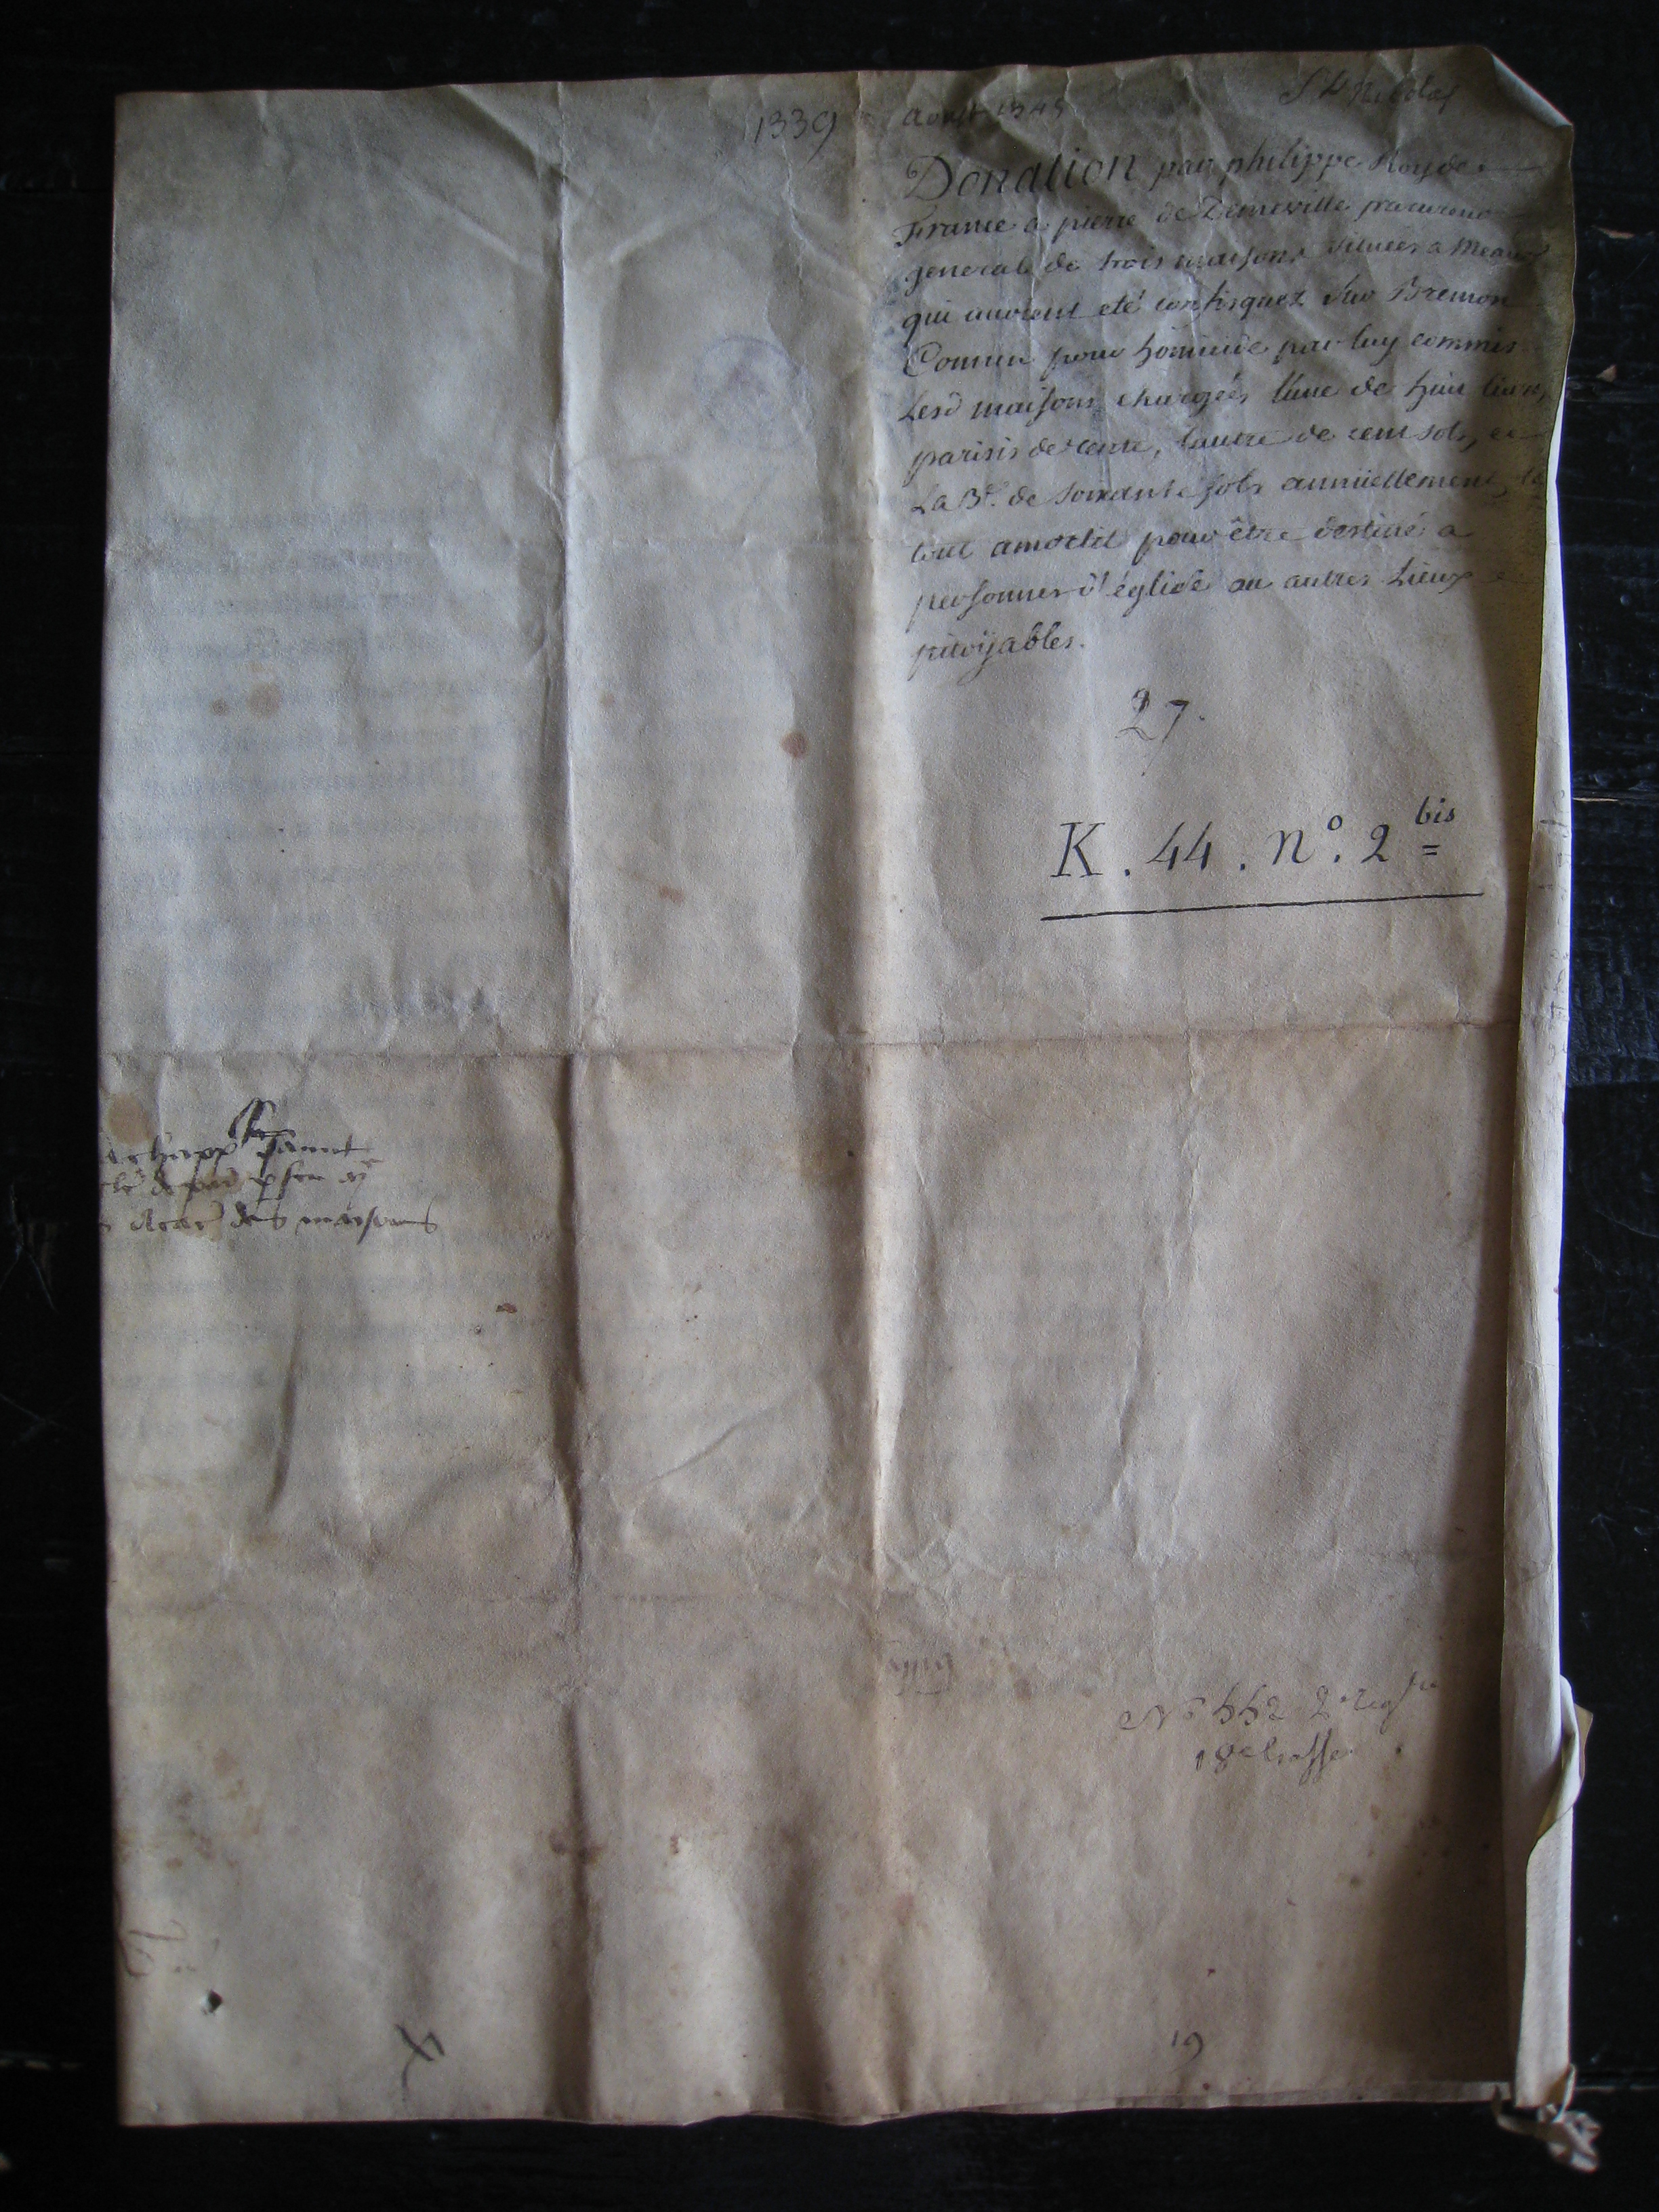 1339 aoust 1345
St Nicolas
Donation par philippe Roy de
France a pierre de Demeville procureur
general de trois maisons situées a Meaux
qui avoient eté confisquez sur Bremon
Comin pour homicide par luy commis
Lesd maisons chargées l'une de huit livres
parisis de rente, l'autre de cent sols, et
La 3e. de soixante sols annüellement, le
tout amorti pour être destiné a
personnes d'église ou autres Lieux
pitoyables.
27.
K. 44. n°. 2 bis
des maisons
N° 552 2e regtre
18e liasse
19